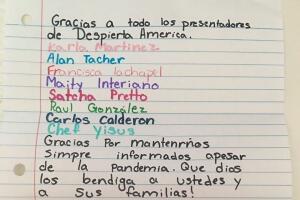 Gracias a todo los presentadores
de Despierta America.
Karla Martinez
Alan Tacher
Francisca lachapel
Maity Interiano
Satcha Pretto
Raul González
Carlos Calderon
Chef Yisus
Gracias Por mantenrnos
Simpre informados apesar
de la Pandemia. Que dios
los bendiga a ustedes y
a Sus familias!